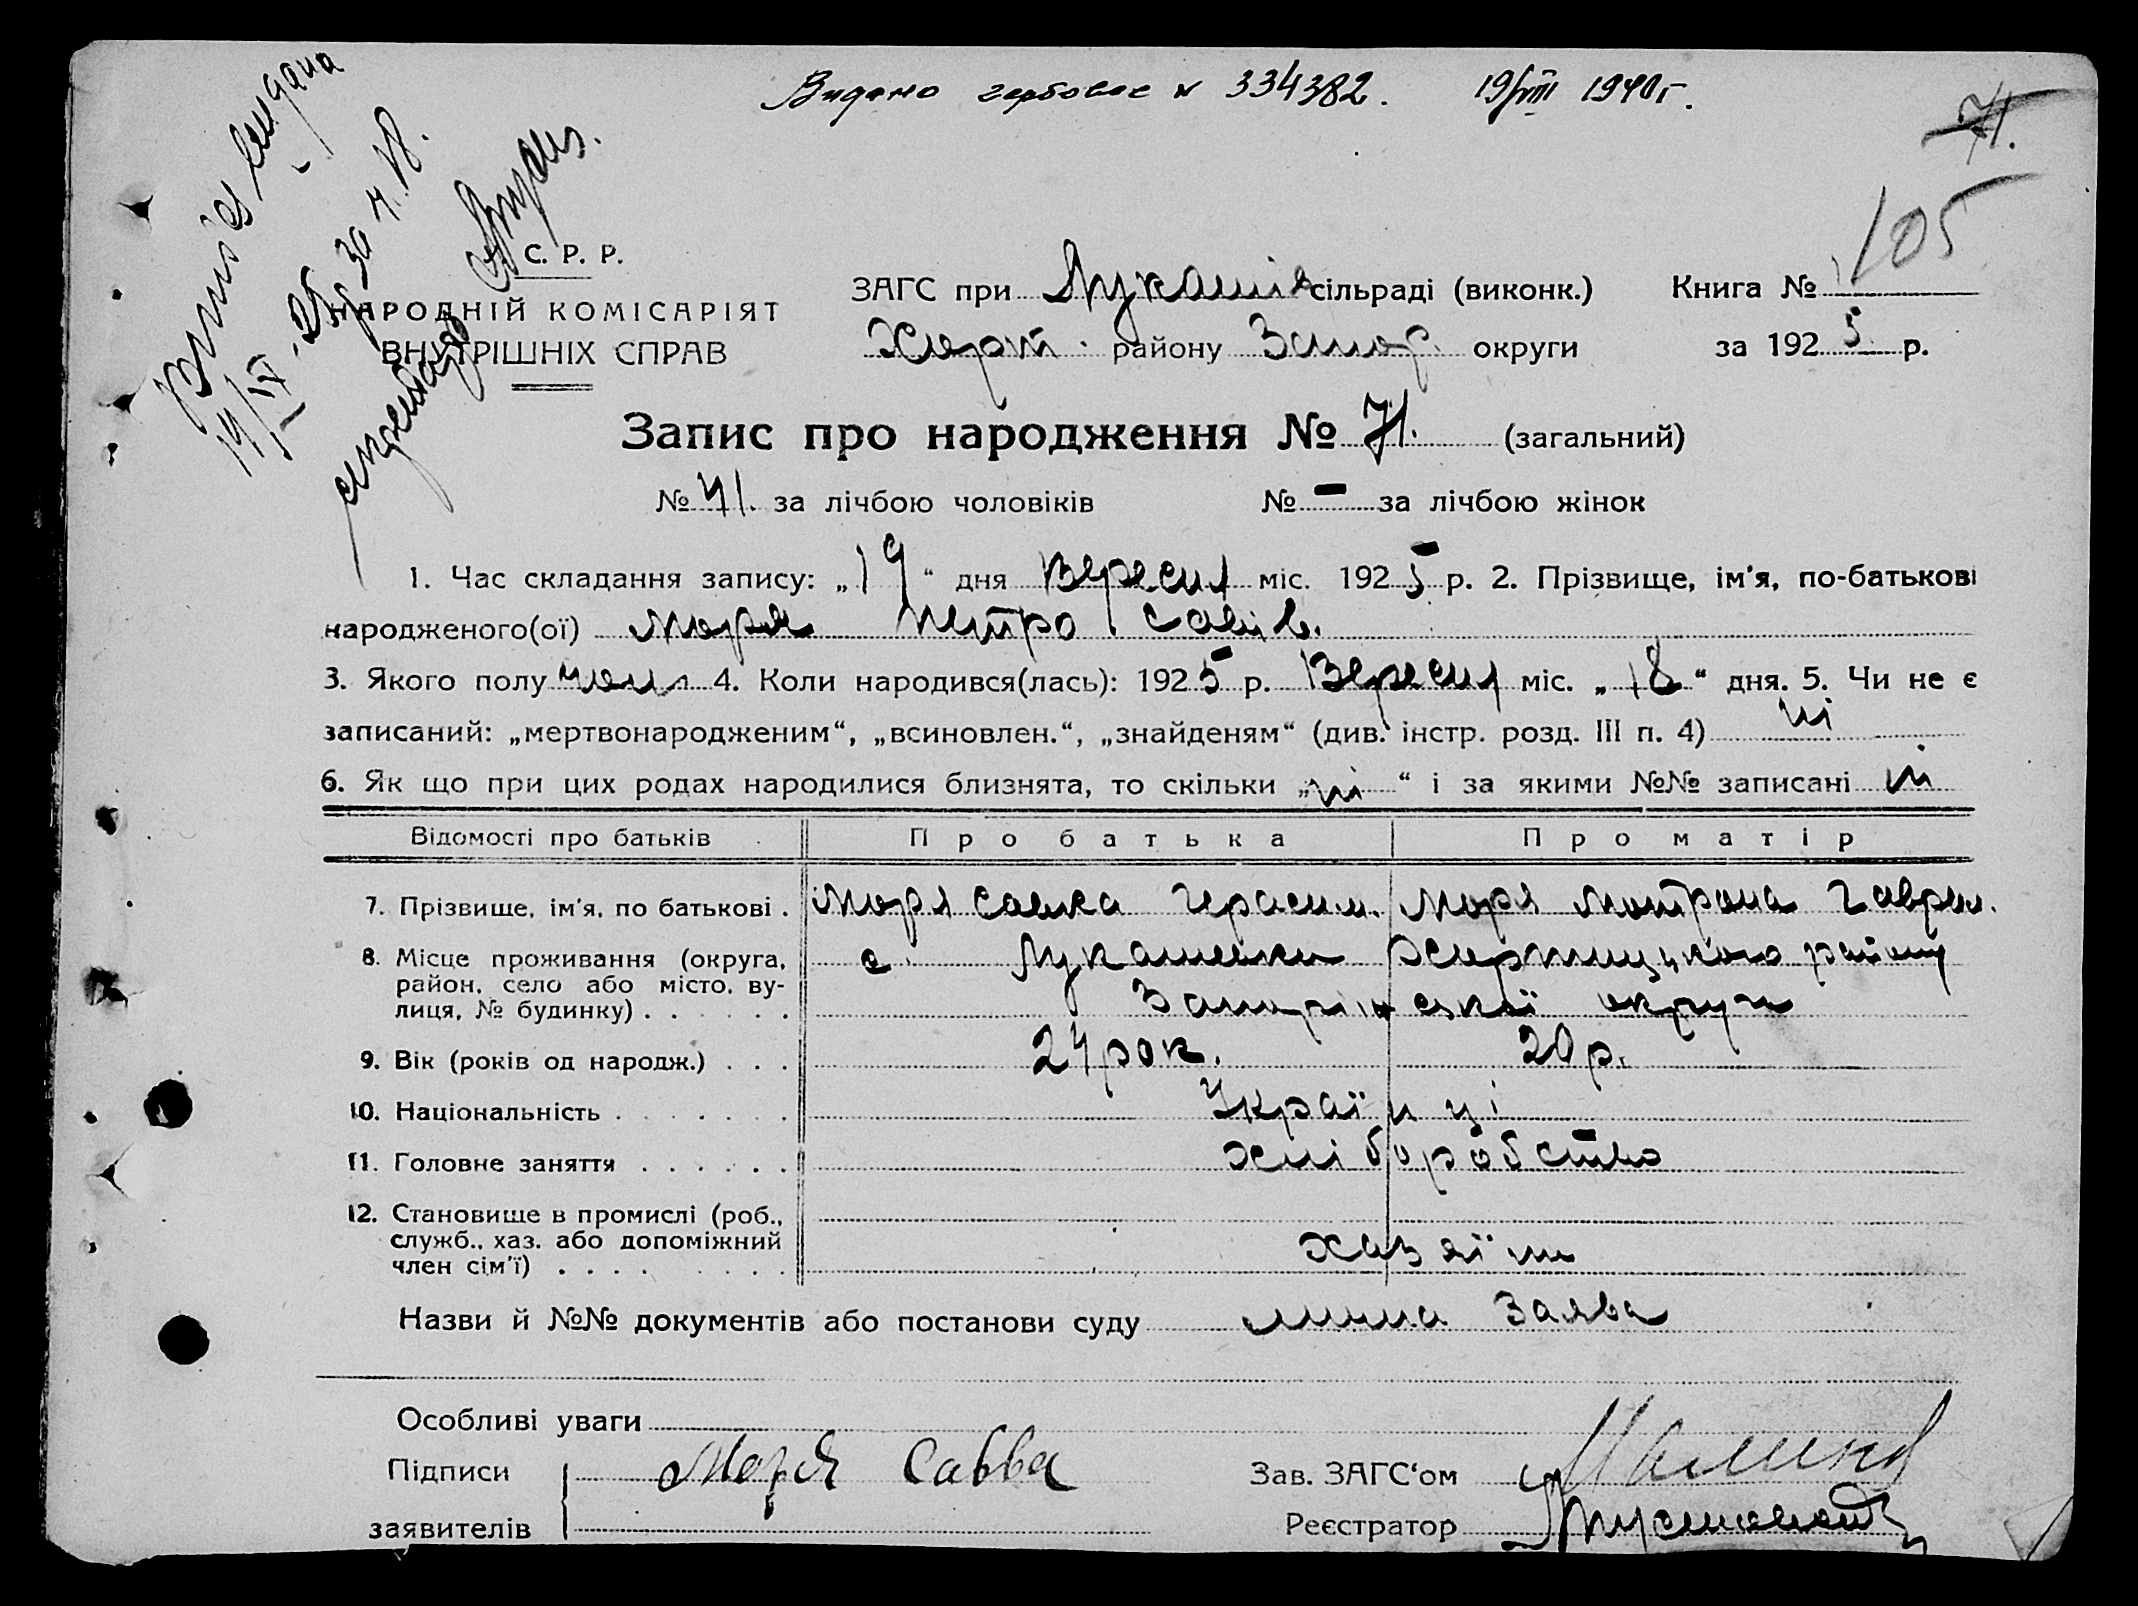 Видано гербовое № 334382. 19/VIII 1940 г.
71.
105
Випись видана
19/IX-25 р. за ч. 18.
С. Р. Р.
НАРОДНІЙ КОМІСАРІЯТ
ВНУТРІШНІХ СПРАВ
ЗАГС при Лукашів сільраді (виконк.) Книга №
Хорт. району Запор. округи за 1925 р.
Запис про народження № 71. (загальний)
№ 41. за лічбою чоловіків № - за лічбою жінок
1. Час складання запису: „19“ дня Вересня міс. 1925 р. 2. Прізвище, ім'я, по-батькові
народженого(ої) Моря Петро Савів.
3. Якого полу чол. 4. Коли народився(лась): 1925 р. Вересня міс. „18“ дня. 5. Чи не є
записаний: „мертвонародженим“, „всиновлен.“, „знайденям“ (див. інстр. розд. III п. 4) ні
6. Як що при цих родах народилися близнята, то скільки „ні“ і за якими №№ записані ні
Відомості про батьків Про батька Про матір
7. Прізвище, ім'я, по батькові. Моря Савка Герасим. Моря Мотрона Гаврил.
8. Місце проживання (округа, район, село або місто, вулиця, № будинку) с. Лукашевки Хортицького району
Запоріжської округи
9. Вік (років од народж.) 24 рок. 20 р.
10. Національність Українці
11. Головне заняття хліборобство
12. Становище в промислі (роб.,
служб., хаз. або допоміжний
член сім'ї) хазяїни
Назви й №№ документів або постанови суду лична заява
Особливі уваги
Підписи Моря Савва Зав. ЗАГС‘ом
заявителів Реєстратор